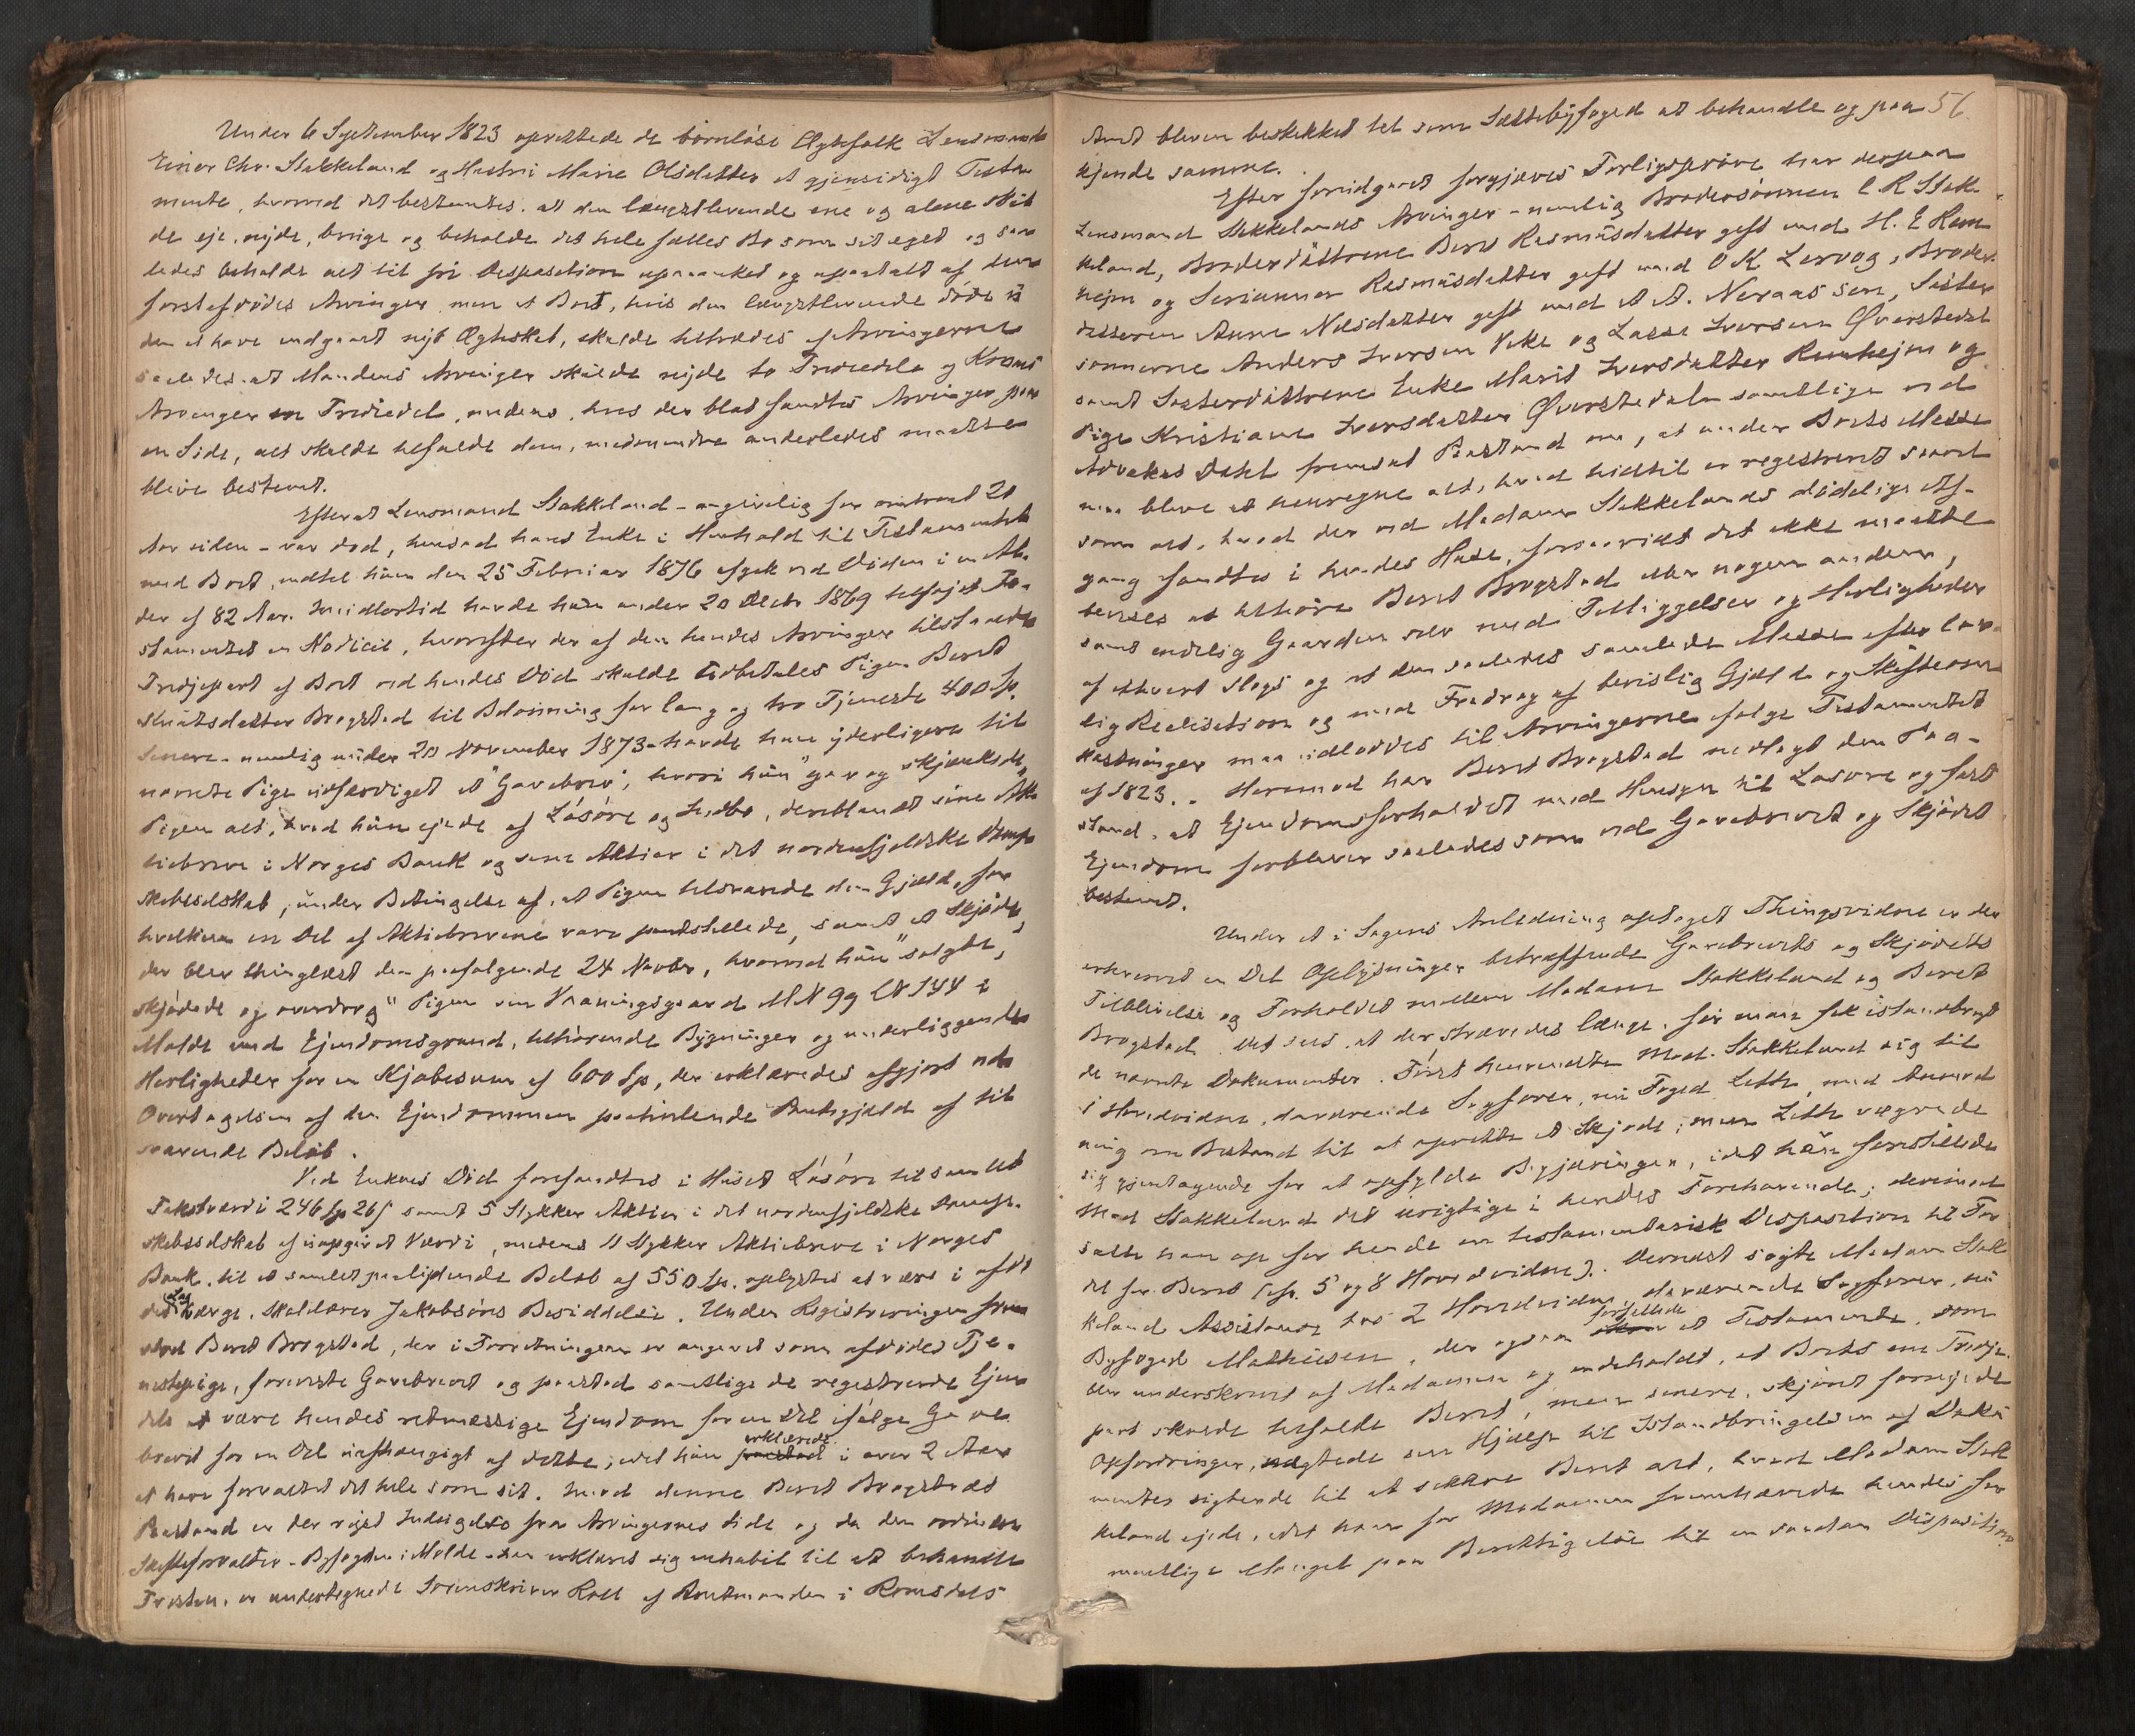 Under 6 September 1823 oprettede de börnlöse Ægtefolk Lensmand
Einer Chr. Stakkeland og Hustru Marie Olsdatter et gjensidigt Testa
mente, hvorved det bestemtes, at den længstlevende ene og alene skul
de eje, nyde, bruge og beholde det hele fælles Bo som sit eget og saa
ledes beholde alt til fri Desposition upaaanket og upaatalt af den
förstafdödes Arvinger, men at Boet, hvis den længstlevende döde u
den at have indgaaet nyt Ægteskab, skulde tiltrædes af Arvingerne
saaledes at Mandens Arvinger skulde nyde to Trediedele og Konens
Arvinger en Trediedel, medens, hvis der blot fandtes Arvinger paa
en Side, alt skulde tilfalde dem, medmindre anderledes maatte
blive bestemt.
Efterat Lensmand Stakkeland - angivelig for omtrent 20
Aar siden - var död, hensad hans Enke i Henhold til Testamentet
med Boet, indtil hun den 25 Februar 1876 afgik ved Döden i en Al-
der af 82 Aar. Imidlertid havde hun under 20 Decbr 1869 tilföjet Te-
stamentet en Kodicil, hvorefter der af den hendes Arvinger tilstaaede
Tredjepart af Boet ved hendes Död skulde udbetales Pigen Beret
Knutsdatter Brogstad til Belönning for lang og tro Tjeneste 400 Sp.
Senere - nemlig under 20 November 1873 - havde hun yderligere til
nævnte Pige udfærdiget et "Gavebrev", hvori hun "gav og skjænkede"
Pigen alt, hvad hun ejede af Lösöre og Indbo, deriblandt sine Ak
tiebreve i Norges Bank og sine Aktier i det nordenfjeldske Damp
skibsselskab, under Betingelse af, at Pigen tilsvarede den Gjæld, for
hvilken en Del af Aktiebrevene vare pantstillede, samt et Skjöde,
der blev thinglæst den paafölgende 24 Novbr, hvorved hun "solgte,
skjödede og overdrog" Pigen sin Vaaningsgaard M N 99 LN 144 i
Molde med Ejendomsgrund, tilhörende Bygninger og underliggende
Herligheder for en Kjöbesum af 600 Sp, der erklæredes afgjort ved
Overtagelsen af den Ejendommen paahvilende Bankgjæld af til
svarende Belöb.
Ved Enkens Död forefandtes i Huset Lösöre til samlet
Takstværdi 246 Sp 26 s samt 5 Stykker Aktier i det nordenfjeldske Damp-
skibsselskab af uopgivet Værdi, medens 11 Stykker Aktiebreve i Norges
Bank til et samlet paalydende Belöb af 550 Sp. oplystes at være i afdö
des Lagværge, Skolelærer Jakobsöns Besiddelse. Under Registreringen frem
stod Beret Brogstad, der i Forretningen er angivet som afdödes Tje-
nestepige, foreviste Gavebrevet og paastod samtlige de registrerede Ejen
dele at være hendes retmæssige Ejendom for en Del ifölge Gave
brevet for en Del uafhængigt af dette, idet hun paastod erklærede i over 2 Aar
at have forvaltet det hele som sit. Imod denne Beret Brogstads
Paastand er der rejst Indsigelse fra Arvingernes Side og da den ordinære
Skifteforvalter - Byfogden i Molde - har erklæret sig inhabil til at behandle
Tvisten, er undertegnede Sorenskriver Roll af Amtmanden i Romsdals
56.
Amt bleven beskikket til som Sættebyfoged at behandle og paa
kjende samme.
Efter foreidgaaet forgjæves Forligspröve har derpaa
Lensmand Stakkelands Arvinger - nemlig Brodersönnen C R Stak
keland, Broderdöttrene Beret Rasmusdatter gift med H. E Rem
hejm og Serianna Rasmusdatter gift med O K Lervog, Broder
datteren Anne Nilsdatter gift med A A. Neraas sen, Söster
sönnerne Anders Iversen Vike og Lasse Iversen Överstedal
samt Sösterdöttrene Enke Marit Iversdatter Remhejm og
Pige Kristiane Iversdatter Överstedalen samtlige ved
Advokat Dahl fremsat Paastand om, at under Boets Masse
maa blive at henregne alt, hvad hidtil er registreret saavel
som alt, hvad der ved Madame Stakkelands dödelige Af-
gang fandtes i hendes Huse, forsaavidt det ikke maatte
bevises at tilhöre Beret Brogstad eller nogen anden,
samt endelig Gaarden selv med Tilliggelser og Herligheder
af ethvert Slags og at den saaledes samlede Masse efter lov-
lig Realisation og med Fradrag af bevislig Gjæld og Skifteom
kostninger maa udloddes til Arvingerne fölge Testamentet
af 1823. Herimod har Beret Brogstad nedlagt den Paa-
stand, at Ejendomsforholdet med Hensyn til Lösöre og fast
Ejendom forbliver saaledes som ved Gavebrevet og Skjödet
bestemt.
Under et i Sagens Anledning optaget Thingsvidne er der
erhvervet en Del Oplysninger betræffende Gavebrevets og Skjödets
Tilblivelse og Forholdet mellem Madame Stakkeland og Beret
Brogstad. Det sees, at der strævedes længe, för man fik istandbragt
de nævnte Dokumenter. Först henvendte Mad. Stakkeland sig til
1 Hovedvidne, daværende Sagförer, nu Foged Leth, med Anmod
ning om Bistand til at oprette et Skjöde, men Leth vægrede
sig gjentagende for at opfylde Begjæringen, idet han forestillede
Mad Stakkeland det urigtige i hendes Forehavende; derimod
satte han op for hende en testamentarisk Desposition til For
del for Beret (cfr. 5 og 8 Hovedvidne). Dernæst sögte Madam Stak
keland Assistance hos 2 Hovedvidne, daværende Sagförer, nu
Byfoged Mathiesen, der ogsaa forfattede et Testamente, som
blev underskrevet af Madamen og indeholdt, at Boets ene Tredje-
part skulde tilfalde Beret, men senere, skjönt fornyede
Opfordringer, nægtede sin Hjælp til Istandbringelsen af Doku
menter sigtende til at sikkre Beret alt, hvad Madam Stak
keland ejede, idet han for Madamen fremhævede hendes for
mentlige Mangel paa Berettigelse til en saadan Disposition.